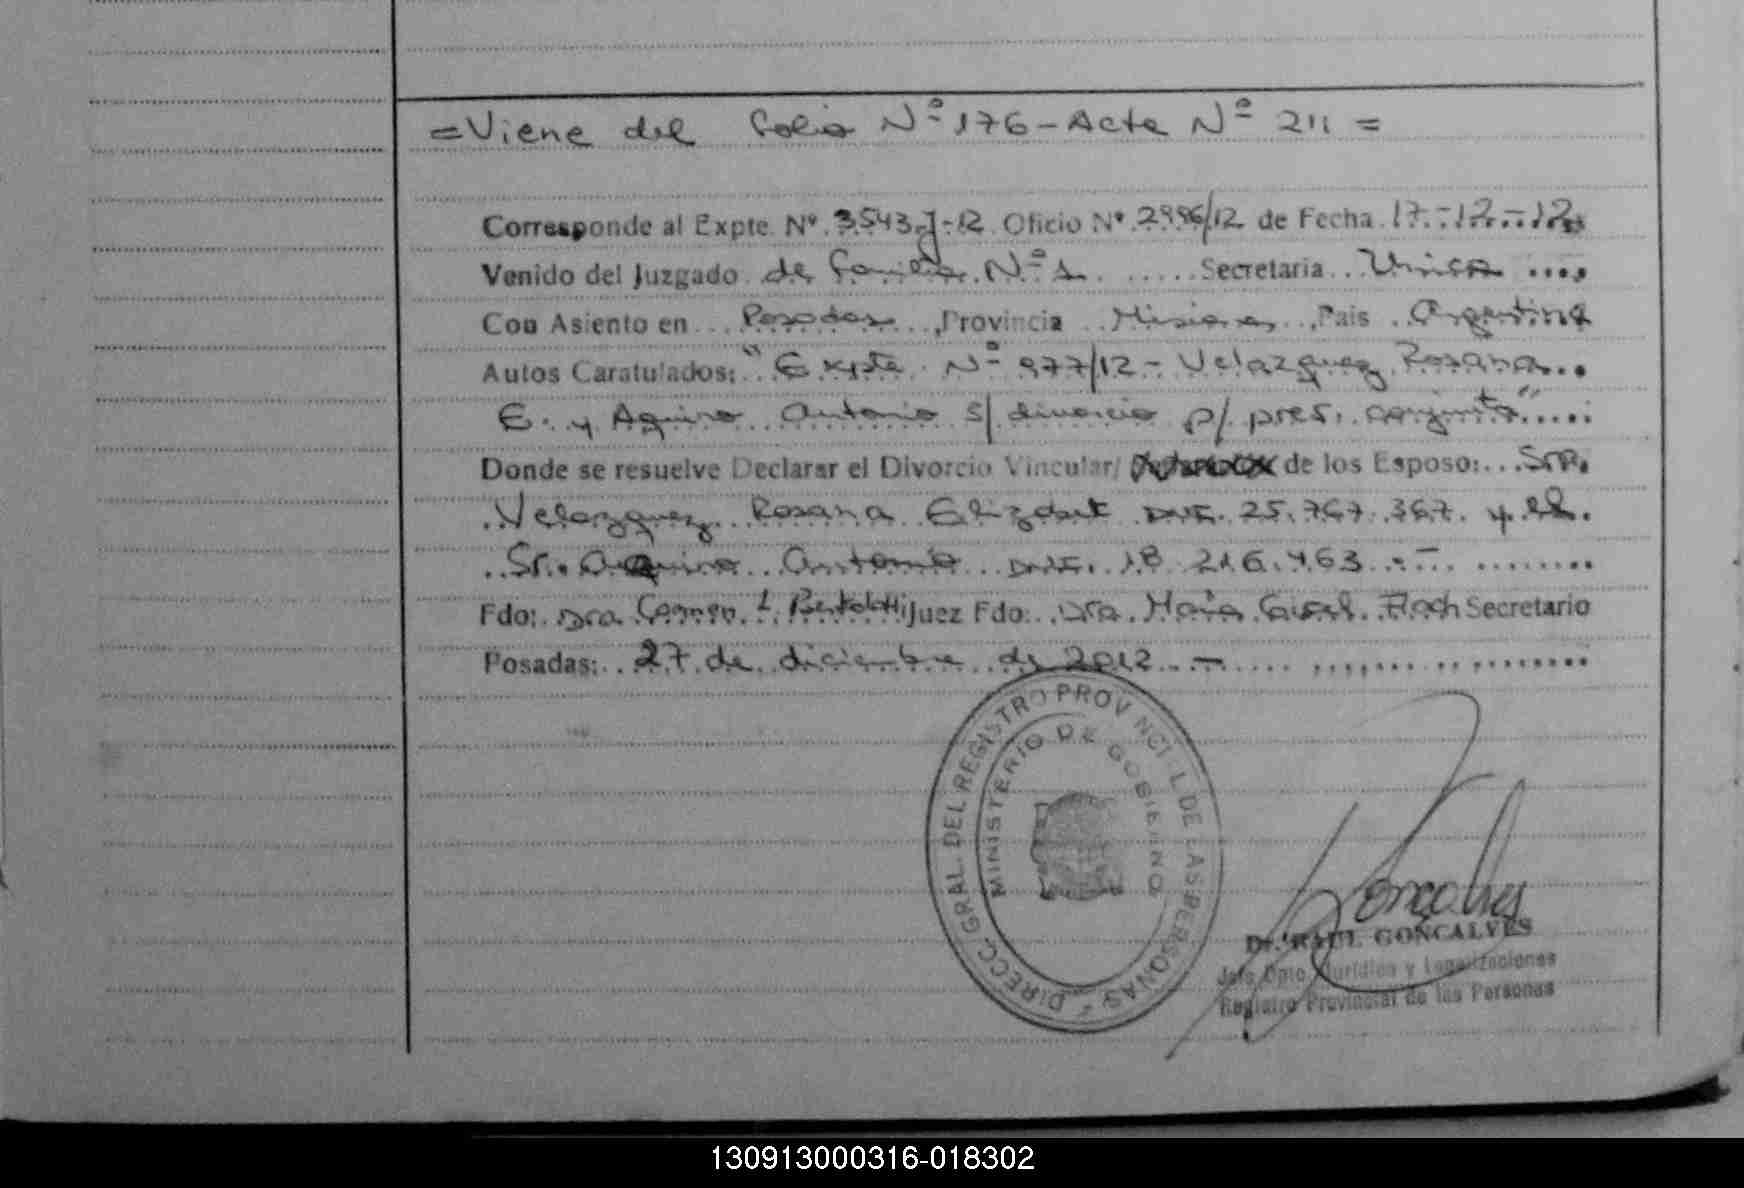 =Viene del folio Nº 176 - Acta Nº 211 =
Corresponde al Expte. Nº 3543-J-12 Oficio Nº 2996/12 de Fecha 17-12-12
Venido del Juzgado de Familia Nº 1 Secretaria Unica
Con Asiento en Posadas, Provincia Misiones, Pais Argentina
Autos Caratulados: "Expte. Nº 977/12 - Velazquez Rosana
E. y Aquino Antonio s/ divorcio p/ pres. conjunta"
Donde se resuelve Declarar el Divorcio Vincular/ de los Esposo: Sra.
Velazquez Rosana Elizabet DNI. 25.767.367. y el
Sr. Aquino Antonio DNI. 18 216.463 . -
Fdo: Dra. Carmen L. Bertolotti Juez Fdo: Dra. María Gisel Secretario
Posadas: 27 de diciembre de 2012 -
DIRECC. GRAL. DEL REGISTRO PROVINCIAL DE LAS PERSONAS
MINISTERIO DE GOBIERNO
Goncalves
Dr. RAUL GONCALVES
Jefe Dpto. Jurídico y Legalizaciones
Registro Provincial de las Personas
130913000316-018302